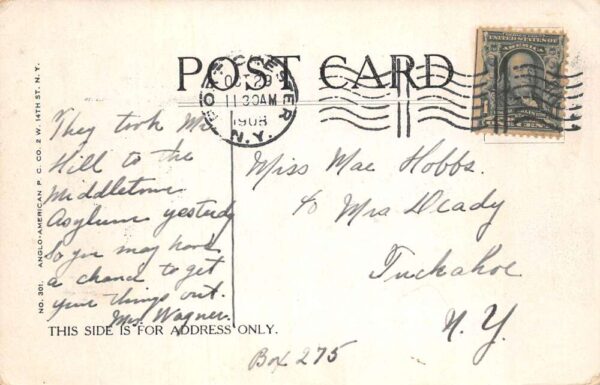 POST CARD
PORT CHESTER
OCT 29
11 30AM
1908
N.Y.
UNITED STATES OF
AMERICA
They took Mr
Hill to the
Middletown
Asylum yesterday
So you may have
a chance to get
your things out.
Mrs. Wagner.
Miss Mae Hobbs.
c/o Mrs Deady
Tuckahoe
N. Y.
Box 275
THIS SIDE IS FOR ADDRESS ONLY.
NO. 301. ANGLO-AMERICAN P. C. CO. 2 W. 14TH ST. N. Y.